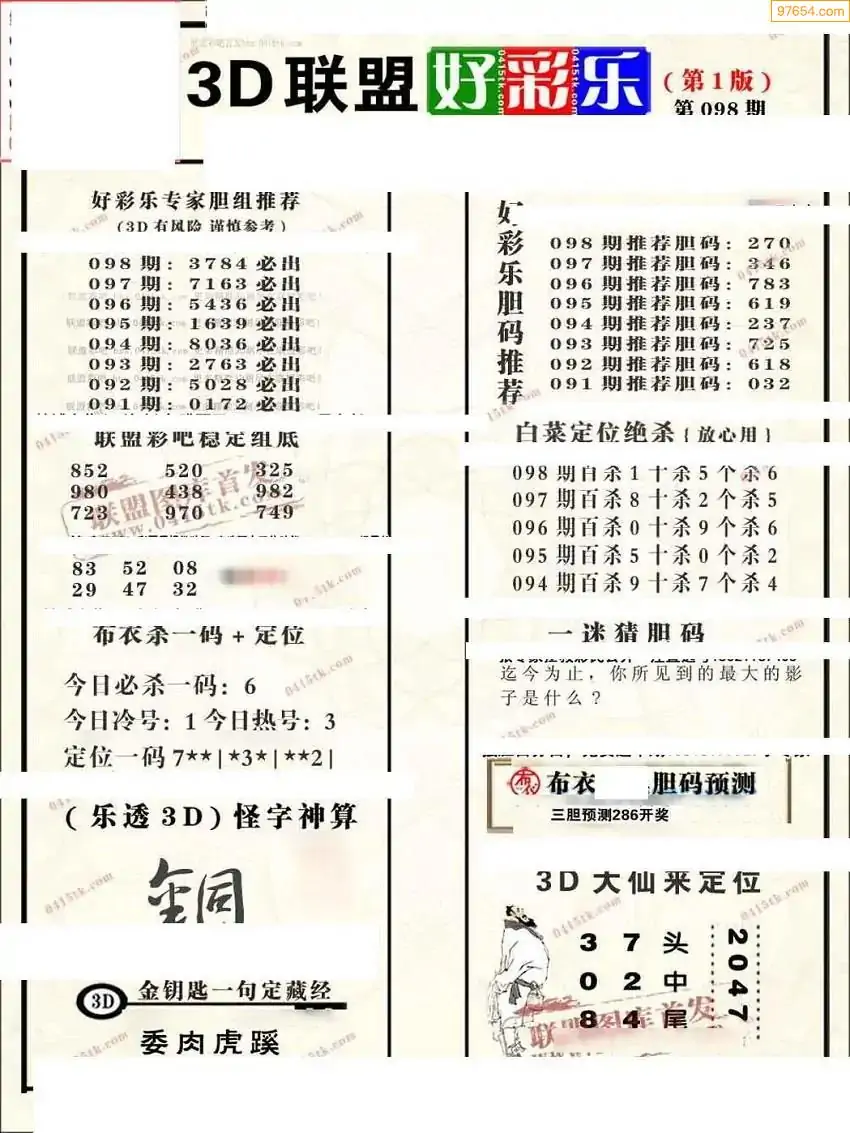 97654.com
3D联盟好彩乐(第1版)
第098期
好彩乐专家胆组推荐
(3D有风险 谨慎参考)
098期:3784必出
097期:7163必出
096期:5436必出
095期:1639必出
094期:8036必出
093期:2763必出
092期:5028必出
091期:0172必出
联盟彩吧稳定组底
852 520 325
980 438 982
723 970 749
联盟图库首发
www.0415tk.com
83 52 08
29 47 32
布衣杀一码+定位
今日必杀一码:6
今日冷号:1今日热号:3
定位一码7**|*3*|**2|
(乐透3D)怪字神算
銅
3D 金钥匙一句定藏经
委肉虎蹊
好彩乐胆码推荐
098期推荐胆码:270
097期推荐胆码:346
096期推荐胆码:783
095期推荐胆码:619
094期推荐胆码:237
093期推荐胆码:725
092期推荐胆码:618
091期推荐胆码:032
白菜定位绝杀{放心用}
098期百杀1十杀5个杀6
097期百杀8十杀2个杀5
096期百杀0十杀9个杀6
095期百杀5十杀0个杀2
094期百杀9十杀7个杀4
一迷猜胆码
迄今为止,你所见到的最大的影
子是什么?
布衣 胆码预测
三胆预测286开奖
3D大仙来定位
3 7 头
0 2 中
8 4 尾
2047
联盟图库首发